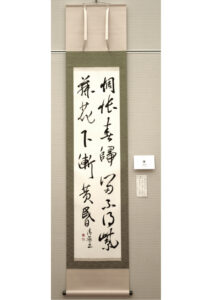 惆悵春歸留不得紫
藤花下漸黄昏